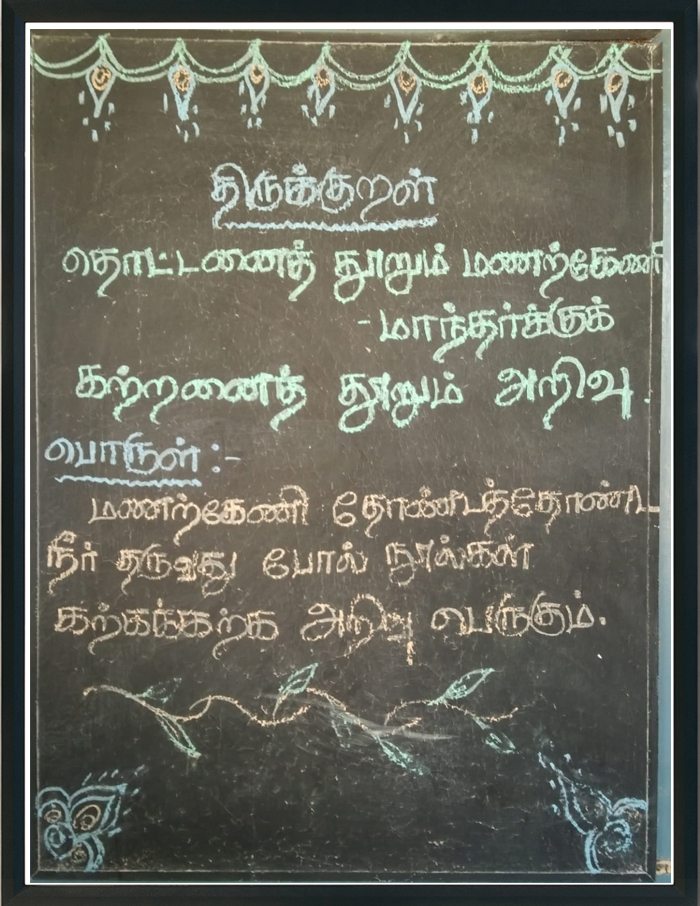 திருக்குறள்
தொட்டனைத் தூறும் மணற்கேணி
-மாந்தர்க்குக்
கற்றனைத் தூறும் அறிவு.
பொருள்:-
மணற்கேணி தோண்டத்தோண்ட
நீர் தருவது போல் நூல்கள்
கற்கக்கற்க அறிவு பெருகும்.